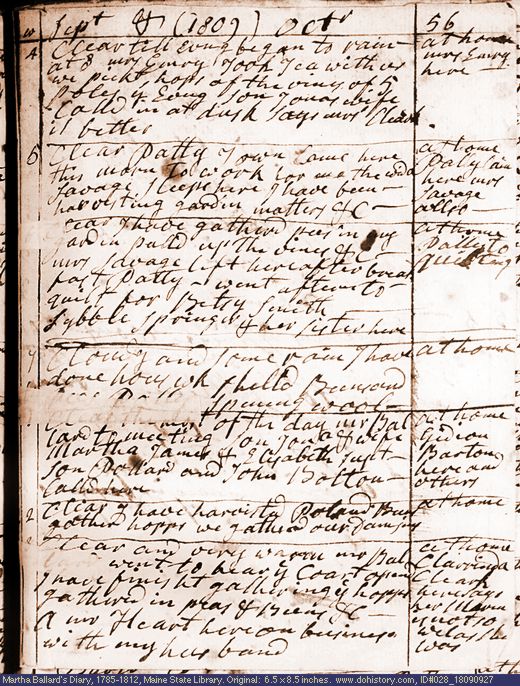 Sept & (1809) Octr 56
4 Clear till Evng began to rain
at 8 mrs Emry Took Tea with us
we pickt hops of the vines of 5
Poles in Evng Son Jonas wife
Calld in at dusk Says mrs Clark
is better
at home
mrs Emry
here
5 Clear Patty Town Came here
this morn to work for me the wid
Savage Sleeps here I have been
harvesting gardin matters &C
at home
Paty Came
here mrs
Savage
allso
Clear I have gathered peas in my
gardin pulld up the vines &C
mrs Savage left here after break
fast Patty went after to
quilt for Betsy Smith
Sybble Springer & her Sister here
at home
Patty to
quilting
7 Cloudy and some rain I have at home
done hous wk Shelld Beens and
Spining wool
of the day mr Bal
lard to meeting Son Jona & wife
Martha James & Elisabeth Supt
Son Pollard and John Barton
Calld here
at home
Gidion
Barton
here and
others
2 Clear I have harvistd Poland Beens at home
gathrd hopps we gathered our damsons
Clear and very warm mr Bal
went to hear ye Coart open
I have finisht gathering ye hopps
gathered in peas & Beens &C
a mr Heart here on business
with my husband
at home
Clarrina
Clark
here says
her Marm
is not so
well as she
was
Martha Ballard's Diary, 1785-1812, Maine State Library. Original: 6.5 x 8.5 inches. www.dohistory.com, ID#028_18090927